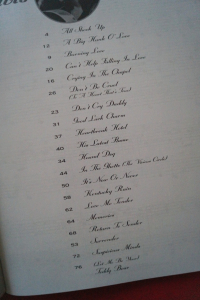 4 All Shook Up
12 A Big Hunk O' Love
9 Burning Love
20 Can't Help Falling In Love
16 Crying In The Chapel
28 Don't Be Cruel
(To A Heart That's True)
23 Don't Cry Daddy
31 Good Luck Charm
37 Heartbreak Hotel
40 His Latest Flame
34 Hound Dog
44 In The Ghetto (The Vicious Circle)
50 It's Now Or Never
58 Kentucky Rain
62 Love Me Tender
64 Memories
68 Return To Sender
53 Surrender
72 Suspicious Minds
76 (Let Me Be Your)
Teddy Bear